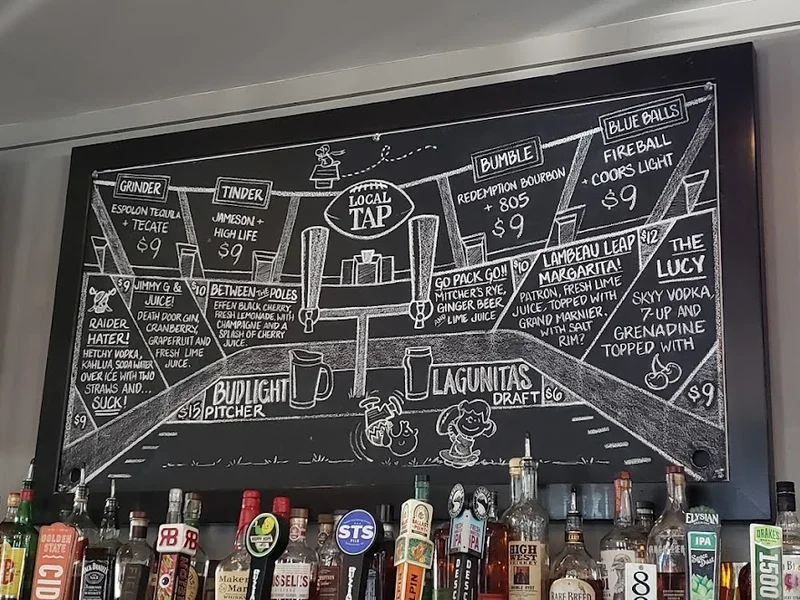 GRINDER
ESPOLON TEQUILA
+ TECATE
$9
TINDER
JAMESON +
HIGH LIFE
$9
LOCAL
TAP
BUMBLE
REDEMPTION BOURBON
+ 805
$9
BLUE BALLS
FIREBALL
+ COORS LIGHT
$9
RAIDER
HATER!
HETCHY VODKA,
KAHLUA, SODA WATER
OVER ICE WITH TWO
STRAWS AND...
SUCK!
$9
$9
JIMMY G &
JUICE!
DEATH DOOR GIN,
CRANBERRY,
GRAPEFRUIT AND
FRESH LIME
JUICE.
$10
BETWEEN THE POLES
EFFEN BLACK CHERRY,
FRESH LEMONADE WITH
CHAMPAGNE AND A
SPLASH OF CHERRY
JUICE.
GO PACK GO!!
MITCHER'S RYE,
GINGER BEER
AND LIME JUICE
$10
LAMBEAU LEAP
MARGARITA!
PATRON, FRESH LIME
JUICE. TOPPED WITH
GRAND MARNIER.
WITH SALT
RIM?
$12
THE
LUCY
SKYY VODKA,
7-UP AND
GRENADINE
TOPPED WITH
$9
$15
BUD LIGHT
PITCHER
LAGUNITAS
DRAFT
$6
GOLDEN
STATE
CID
JACK DANIEL'S
RR
Maker's
Mark
RUSSELL'S
STS
PILS
ALPIN
DESC
DESC
HIGH
WEST
RARE BREED
8
ELYSIAN
IPA
Space
Dust
DRAKE'S
1500